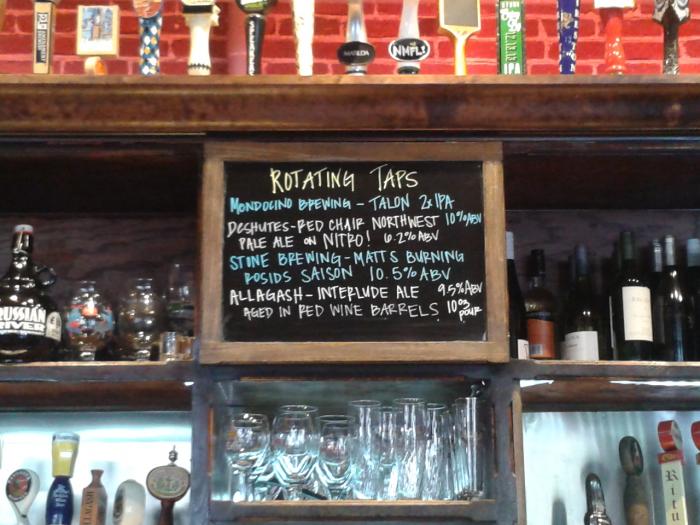 MATILDA
NMFL!
IPA
ROTATING TAPS
MONDOCINO BREWING - TALON 2x IPA
10% ABV
DESHUTES - RED CHAIR NORTHWEST
PALE ALE ON NITRO! 6.2% ABV
STONE BREWING - MATTS BURNING
ROSIDS SAISON 10.5% ABV
ALLAGASH - INTERLUDE ALE 9.5% ABV
AGED IN RED WINE BARRELS 10oz POUR
RUSSIAN
RIVER
Ritu